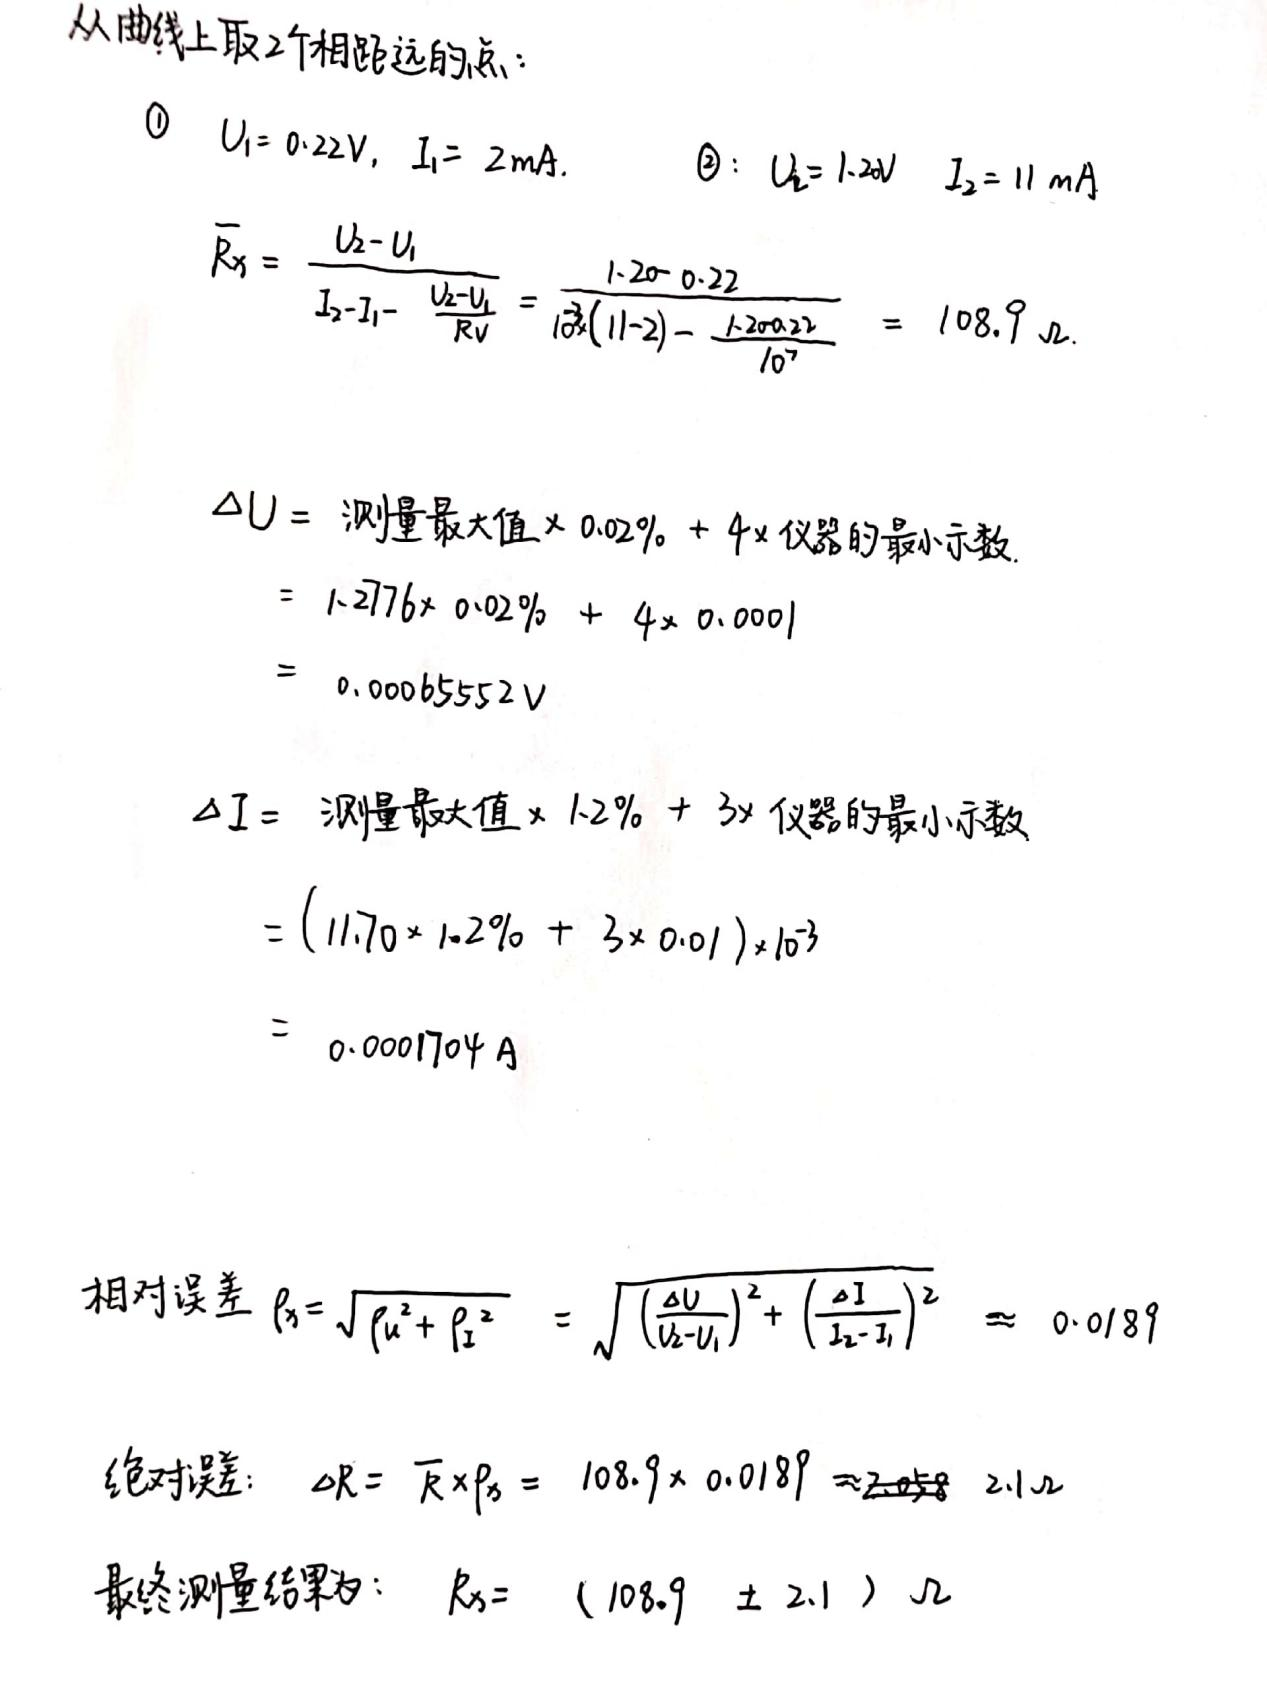 从曲线上取2个相距远的点:
① U₁= 0.22V, I₁= 2mA. ②: U₂= 1.20V I₂= 11 mA
R̅x = (U₂-U₁)/(I₂-I₁- (U₂-U₁)/RV) = (1.20-0.22)/(10⁻³×(11-2) - (1.20-0.22)/10⁷) = 108.9 Ω.
△U = 测量最大值 × 0.02% + 4× 仪器的最小示数.
= 1.2776× 0.02% + 4× 0.0001
= 0.00065552V
△I = 测量最大值 × 1.2% + 3× 仪器的最小示数
= (11.70 × 1.2% + 3× 0.01)×10⁻³
= 0.0001704 A
相对误差 ρx= √(ρu²+ ρI²) = √((△U/(U₂-U₁))²+ (△I/(I₂-I₁))²) ≈ 0.0189
绝对误差: △R = R̅×ρx = 108.9× 0.0189 ≈ 2.058 2.1Ω
最终测量结果为: Rx= (108.9 ± 2.1) Ω